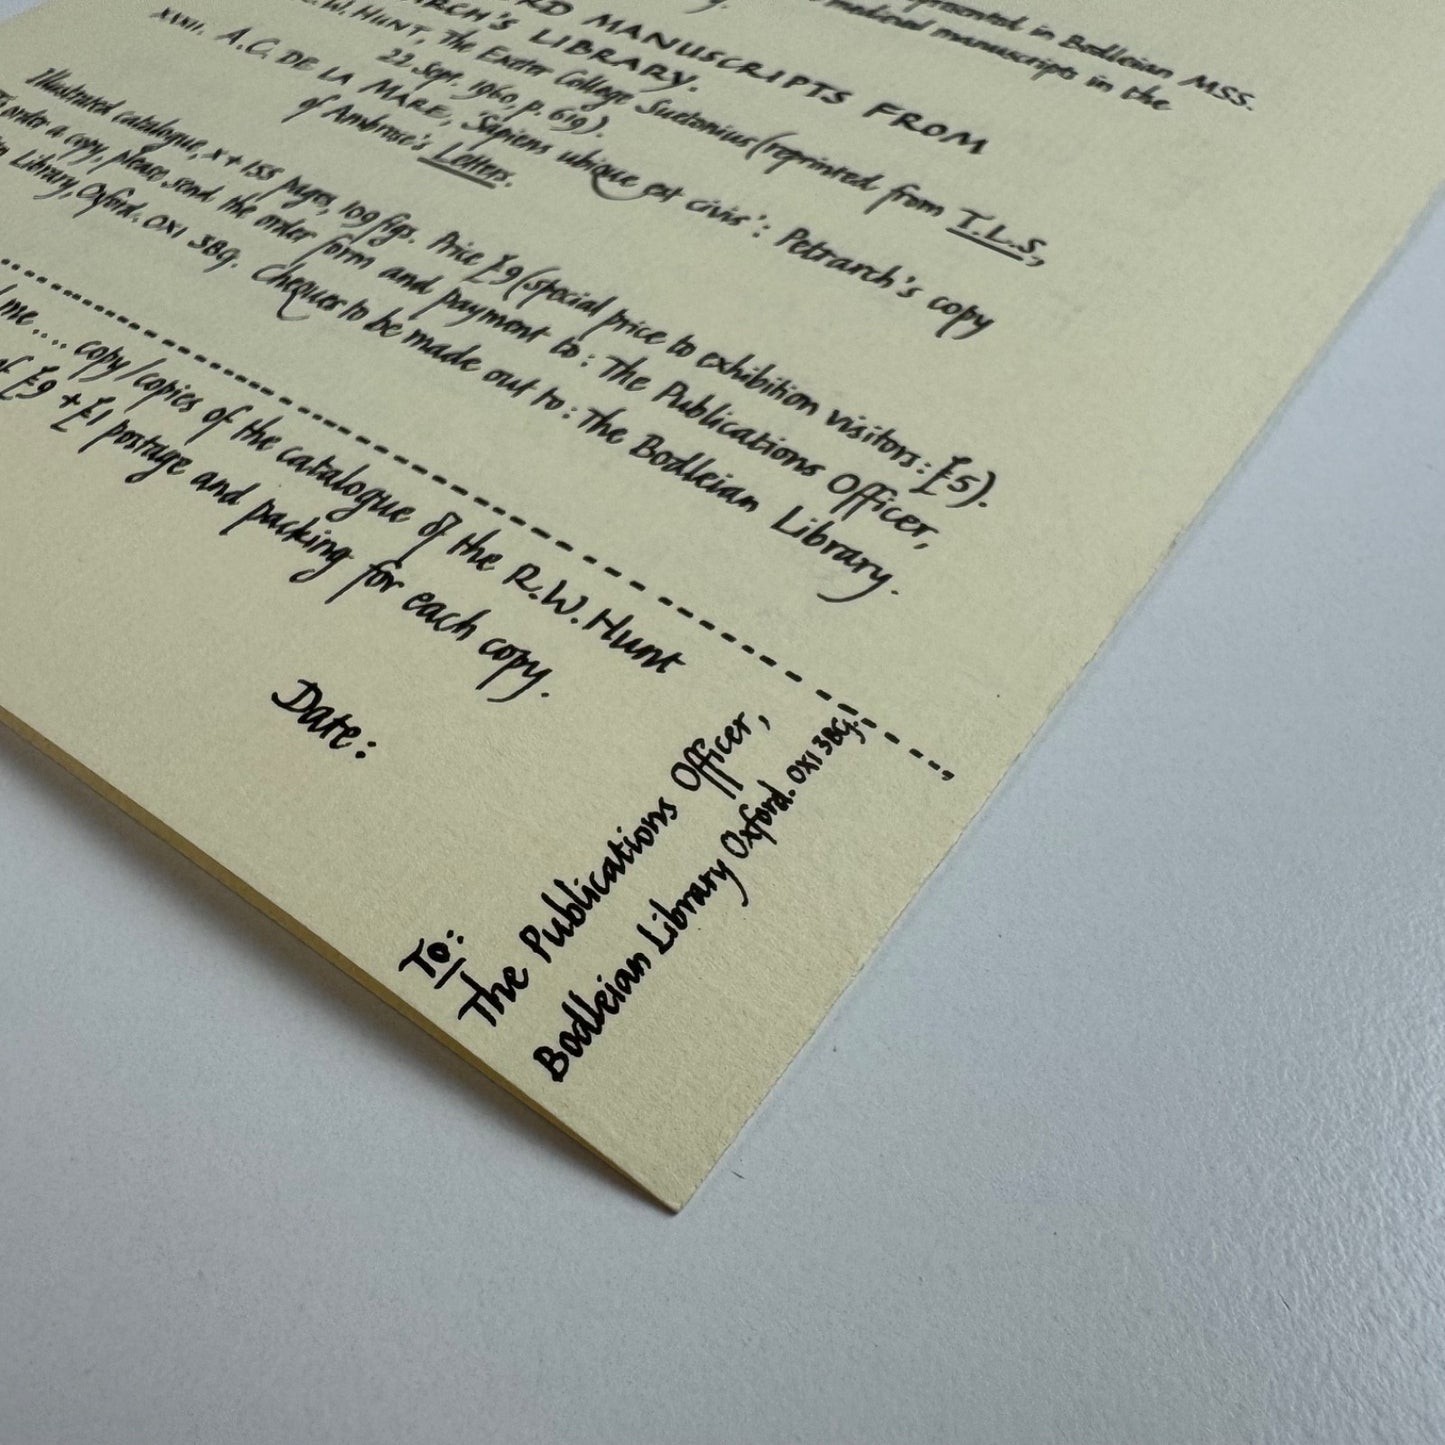 presented in Bodleian MSS.
medieval manuscripts in the
MANUSCRIPTS FROM
LIBRARY.
W. HUNT, The Exeter College Suetonius (reprinted from T.L.S.,
22 Sept. 1960, p. 619).
XVIII. A.C. DE LA MARE, 'Sapiens ubique est civis': Petrarch's copy
of Ambrose's Letters.
Illustrated catalogue, x + 155 pages, 109 figs. Price £9 (special price to exhibition visitors: £5).
order a copy, please send the order form and payment to: The Publications Officer,
Library, Oxford. OX1 3BG. Cheques to be made out to: The Bodleian Library.
me.... copy/copies of the catalogue of the R.W. Hunt
of £9 + £1 postage and packing for each copy.
Date:
To:
The Publications Officer,
Bodleian Library Oxford. OX1 3BG.